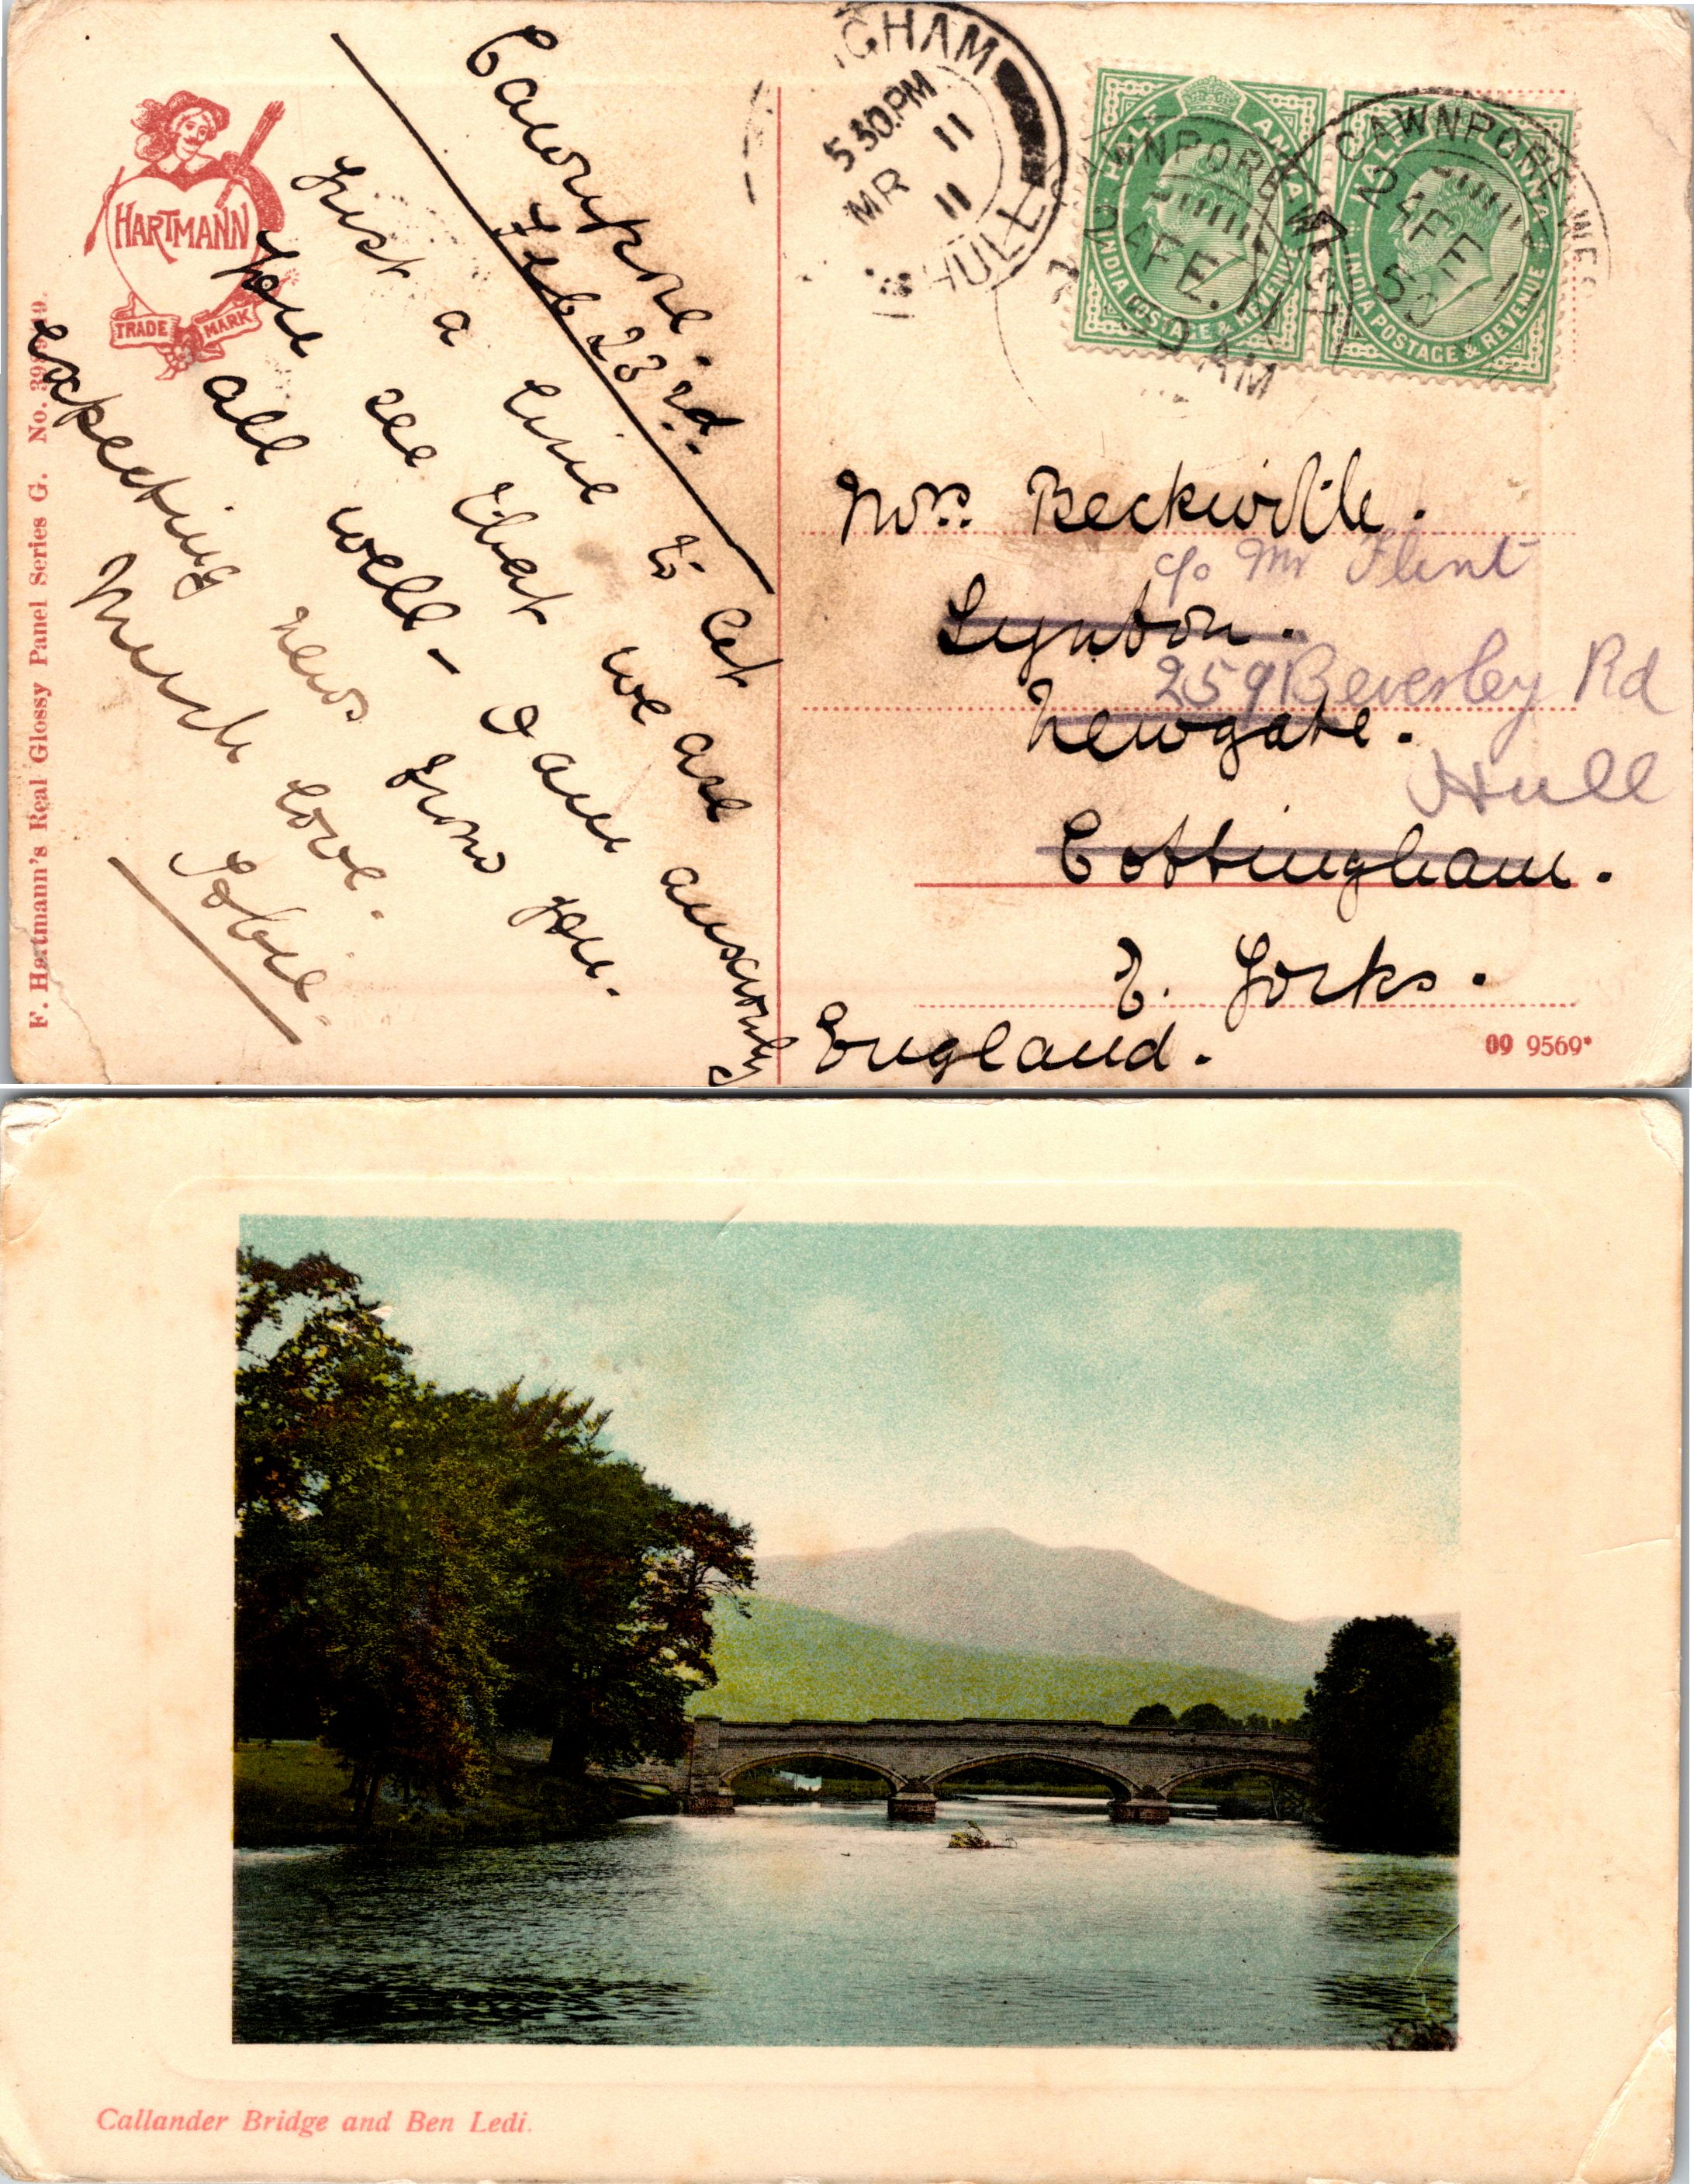 HARTMANN
TRADE MARK
F. Hartmann's Real Glossy Panel Series G. No.
Cawnpore.
Feb 23rd.
Just a line to let
you see that we are
all well - I am anxiously
expecting news from you.
Much love.
GHAM
5 30.PM
MR 11
11
HULL
HALF ANNA
INDIA POSTAGE & REVENUE
CAWNPORE WEST
FE. 11
AM
HALF ANNA
INDIA POSTAGE & REVENUE
CAWNPORE WES
24 FE 1
Mrs. Beckwith.
c/o Mr Flint
Lynton.
259 Beverley Rd
Newgate.
Hull
Cottingham.
E. Yorks.
England.
09 9569*
Callander Bridge and Ben Ledi.